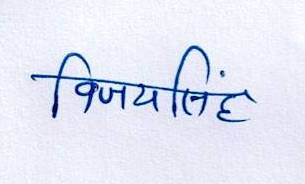 विजय सिंह